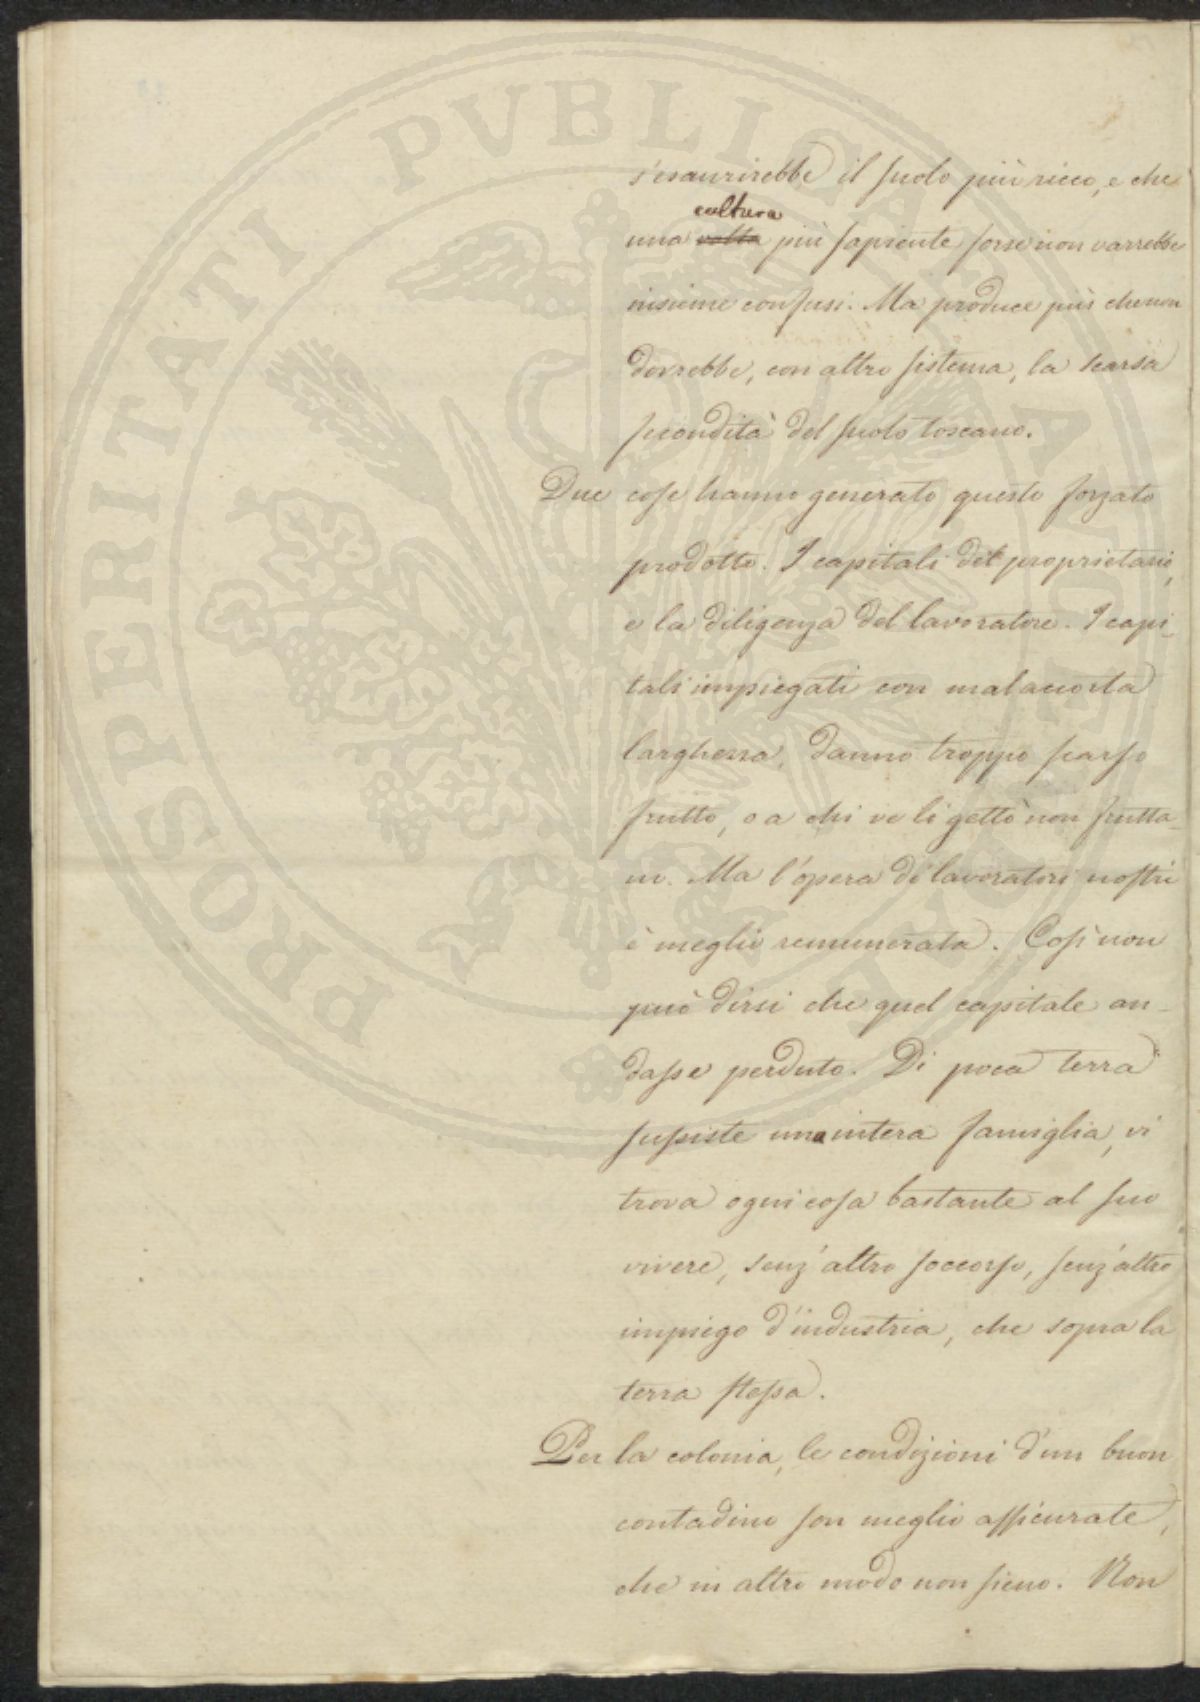 PROSPERITATI PVBLICAE AVGENDAE
s'esaurirebbe il suolo più ricco, e che
cultura
una volta più sapiente forse non varrebbe
insieme confusi. Ma produce più che non
dovrebbe, con altro sistema, la scarsa
fecondità del suolo toscano.
Due cose hanno generato questo forzato
prodotto. I capitali del proprietario,
e la diligenza del lavoratore. I capi-
tali impiegati con malaccorta
larghezza, danno troppo scarso
frutto, o a chi ve li gettò non frutta-
no. Ma l'opera de' lavoratori nostri
è meglio remunerata. Così non
può dirsi che quel capitale an-
dasse perduto. Di poca terra
sussiste una intera famiglia, vi
trova ogni cosa bastante al suo
vivere, senz'altro soccorso, senz'altro
impiego d'industria, che sopra la
terra stessa.
Per la colonia, le condizioni d'un buon
contadino son meglio assicurate,
che in altro modo non sieno. Non